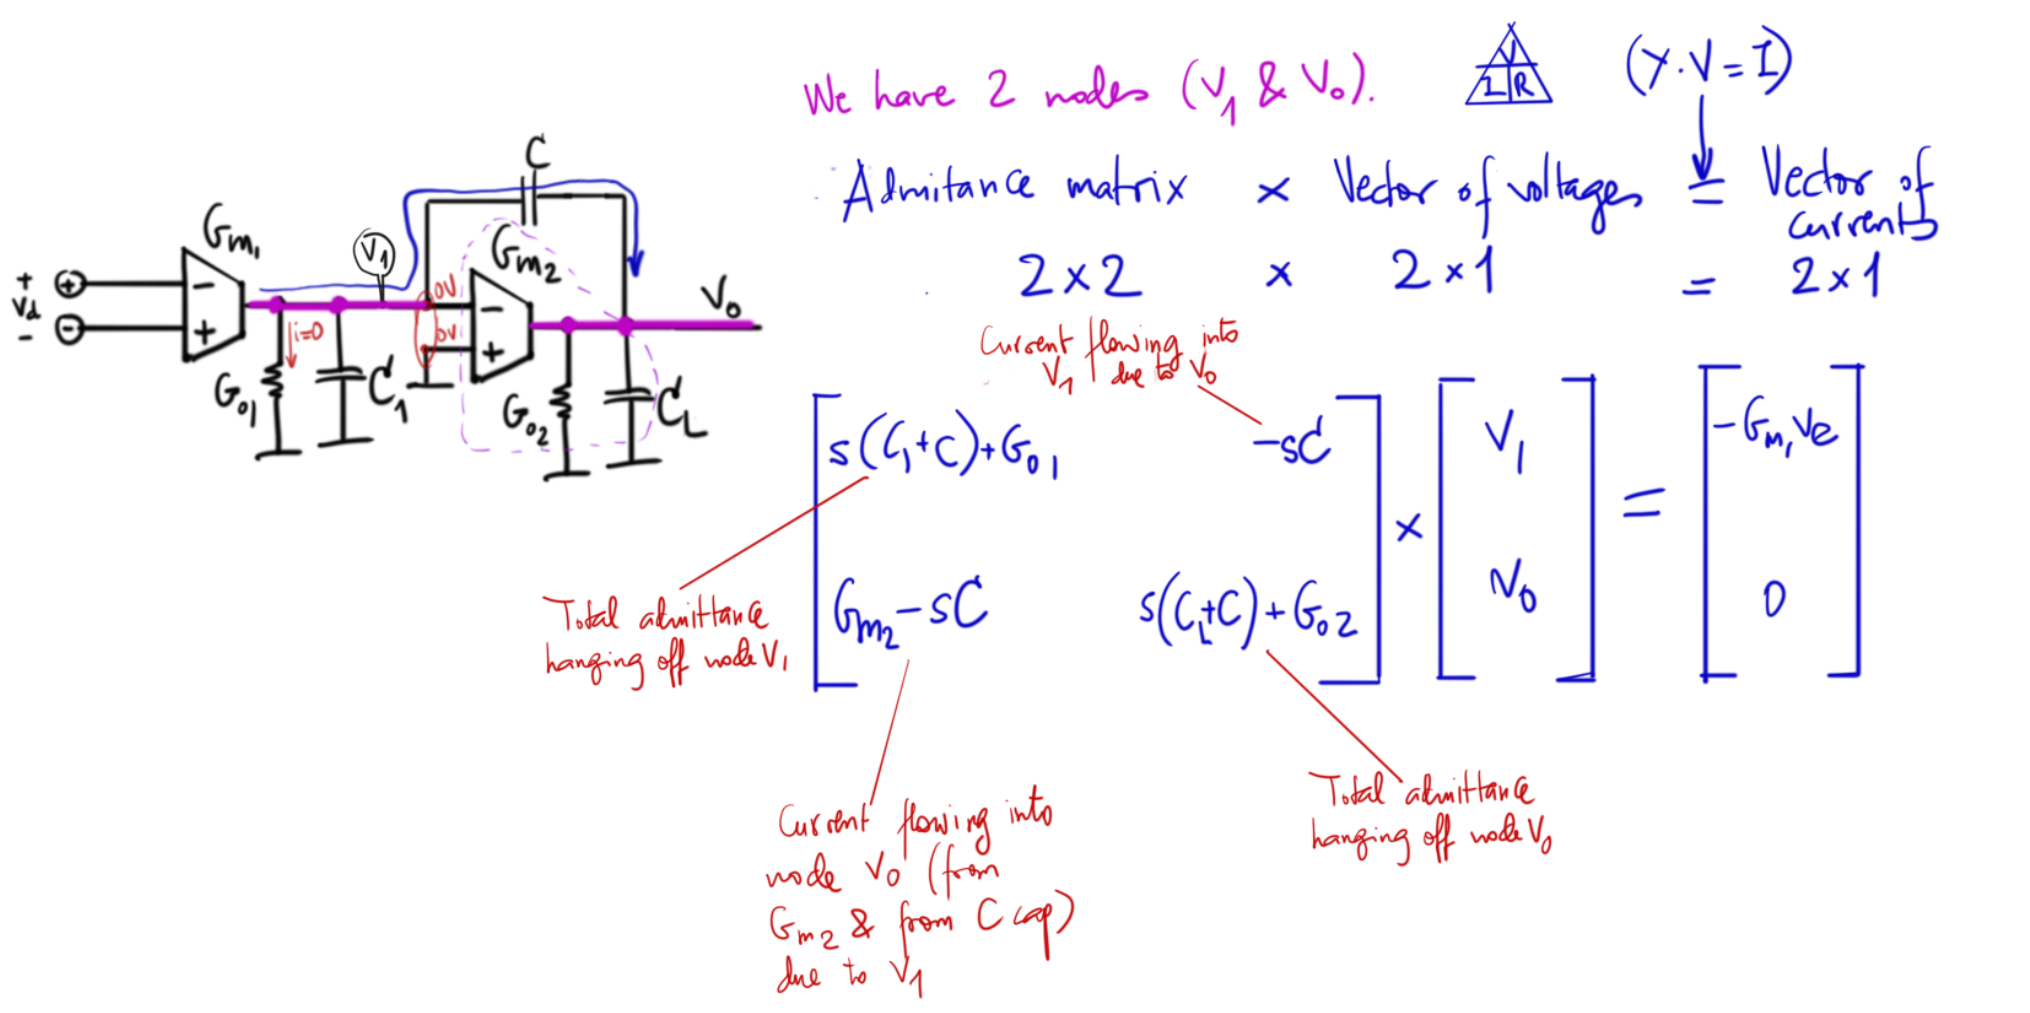 We have 2 nodes (V₁ & V₀).
V
I R
(Y.V=I)
Admitance matrix × Vector of voltages = Vector of
currents
2×2 × 2×1 = 2×1
C
Gm₁
V₁
Gm₂
+
Vd
-
+
-
-
+
i=0
0V
0V
-
+
V₀
G₀₁
C₁
G₀₂
C_L
Current flowing into
V₁ due to V₀
s(C₁+C)+G₀₁ -sC
Gm₂-sC s(C_L+C)+G₀₂
×
V₁
V₀
=
-Gm₁Ve
0
Total admittance
hanging off node V₁
Current flowing into
node V₀ (from
Gm₂ & from C cap)
due to V₁
Total admittance
hanging off node V₀